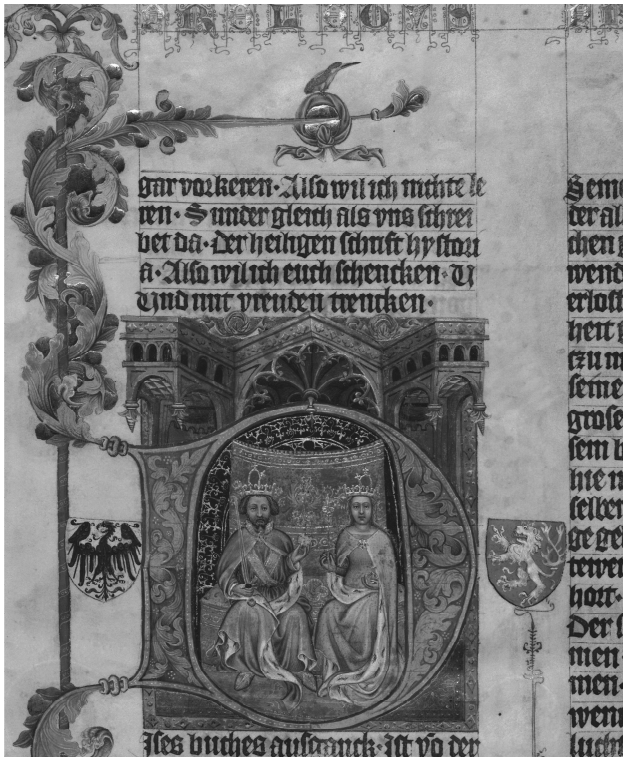 gar vorkeren · Also wil ich nichte le
ren · Sunder gleich als vns schrei
bet da · der heiligen schrift hystori
a · Also wil ich euch schencken · U
Und mit vreuden trencken ·
DIses buches ausganck · Ist vō der
ter al
chen
wend
erlost
heit
tzu
seine
grose
sem
hie
selben
ge
hort ·
Der
men
men ·
wenn
lucht